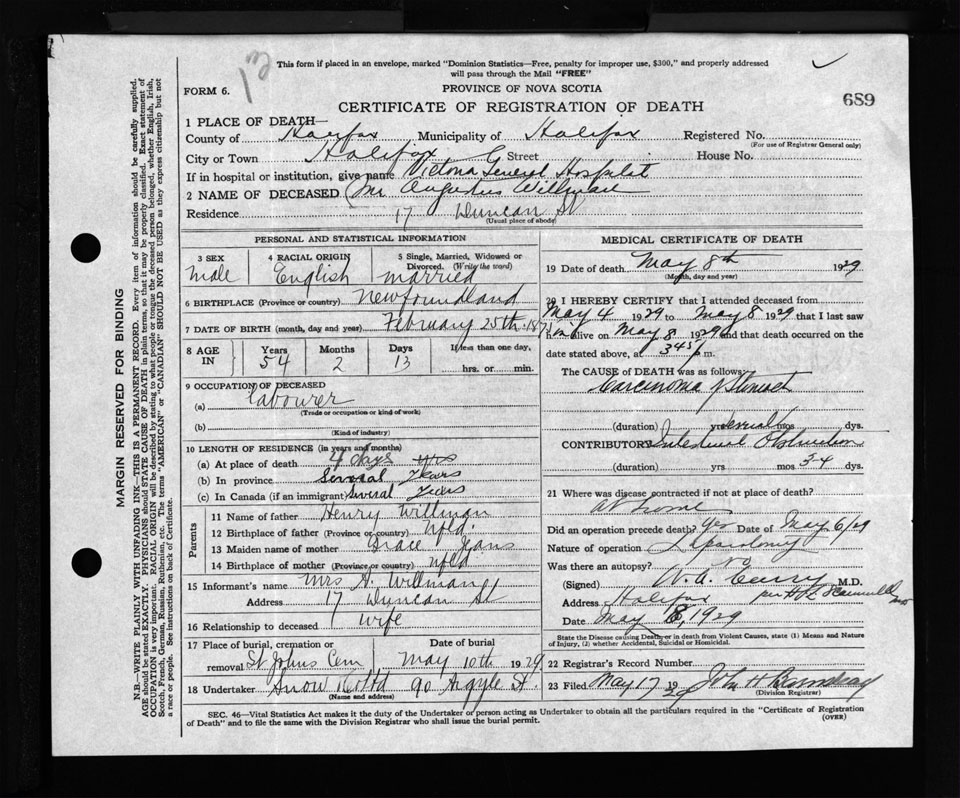 13
This form if placed in an envelope, marked "Dominion Statistics—Free, penalty for improper use, $300," and properly addressed
will pass through the Mail "FREE"
FORM 6.
PROVINCE OF NOVA SCOTIA
CERTIFICATE OF REGISTRATION OF DEATH
689
1 PLACE OF DEATH—
County of Halifax Municipality of Halifax Registered No.
(For use of Registrar General only)
City or Town Halifax Street House No.
If in hospital or institution, give name Victoria General Hospital
2 NAME OF DECEASED Mr Augustus Willman
Residence 17 Duncan St
(Usual place of abode)
PERSONAL AND STATISTICAL INFORMATION
3 SEX 4 RACIAL ORIGIN 5 Single, Married, Widowed or
Divorced. (Write the word)
male English married
6 BIRTHPLACE (Province or country) Newfoundland
7 DATE OF BIRTH (month, day and year) February 25th 187
8 AGE IN Years Months Days If less than one day,
54 2 13 hrs. or min.
9 OCCUPATION OF DECEASED
(a) labourer
(Trade or occupation or kind of work)
(b)
(Kind of industry)
10 LENGTH OF RESIDENCE (in years and months)
(a) At place of death 4 days
(b) In province Several Years
(c) In Canada (if an immigrant) Several Years
Parents
11 Name of father Henry Willman
12 Birthplace of father (Province or country) Nfld.
13 Maiden name of mother Grace Jeans
14 Birthplace of mother (Province or country) Nfld
15 Informant's name Mrs A. Willman
Address 17 Duncan St
16 Relationship to deceased wife
17 Place of burial, cremation or Date of burial
removal St Johns Cem May 10th 1929
18 Undertaker Snow & Co Ltd 90 Argyle St.
(Name and address)
MEDICAL CERTIFICATE OF DEATH
19 Date of death May 8th 1929
(Month, day and year)
20 I HEREBY CERTIFY that I attended deceased from
May 4 1929 to May 8 1929 that I last saw
him alive on May 8 1929 and that death occurred on the
date stated above, at 345 p m.
The CAUSE of DEATH was as follows:
Carcinoma of Stomach
(duration) yrs several mos dys.
CONTRIBUTORY Intestinal Obstruction
(duration) yrs mos 3-4 dys.
21 Where was disease contracted if not at place of death?
At home
Did an operation precede death? Yes Date of May 6/29
Nature of operation
Was there an autopsy? no
(Signed) W. A. Curry M.D.
Address Halifax per
Date May 8, 1929
State the Disease causing Death, or in death from Violent Causes, state (1) Means and Nature
of Injury, (2) whether Accidental, Suicidal or Homicidal.
22 Registrar's Record Number
23 Filed May 17 1929 John H
(Division Registrar)
SEC. 46—Vital Statistics Act makes it the duty of the Undertaker or person acting as Undertaker to obtain all the particulars required in the "Certificate of Registration
of Death" and to file the same with the Division Registrar who shall issue the burial permit.
(OVER)
MARGIN RESERVED FOR BINDING
N.B.—WRITE PLAINLY WITH UNFADING INK—THIS IS A PERMANENT RECORD. Every item of information should be carefully supplied.
AGE should be stated EXACTLY. PHYSICIANS should STATE CAUSE OF DEATH in plain terms, so that it may be properly classified. Exact statement of
OCCUPATION is very important. RACIAL ORIGIN will be described by stating to what people or tongue the deceased person belonged, whether English, Irish,
Scotch, French, German, Russian, Ruthenian, etc. The terms "AMERICAN" or "CANADIAN" SHOULD NOT BE USED as they express citizenship but not
a race or people. See instructions on back of Certificate.